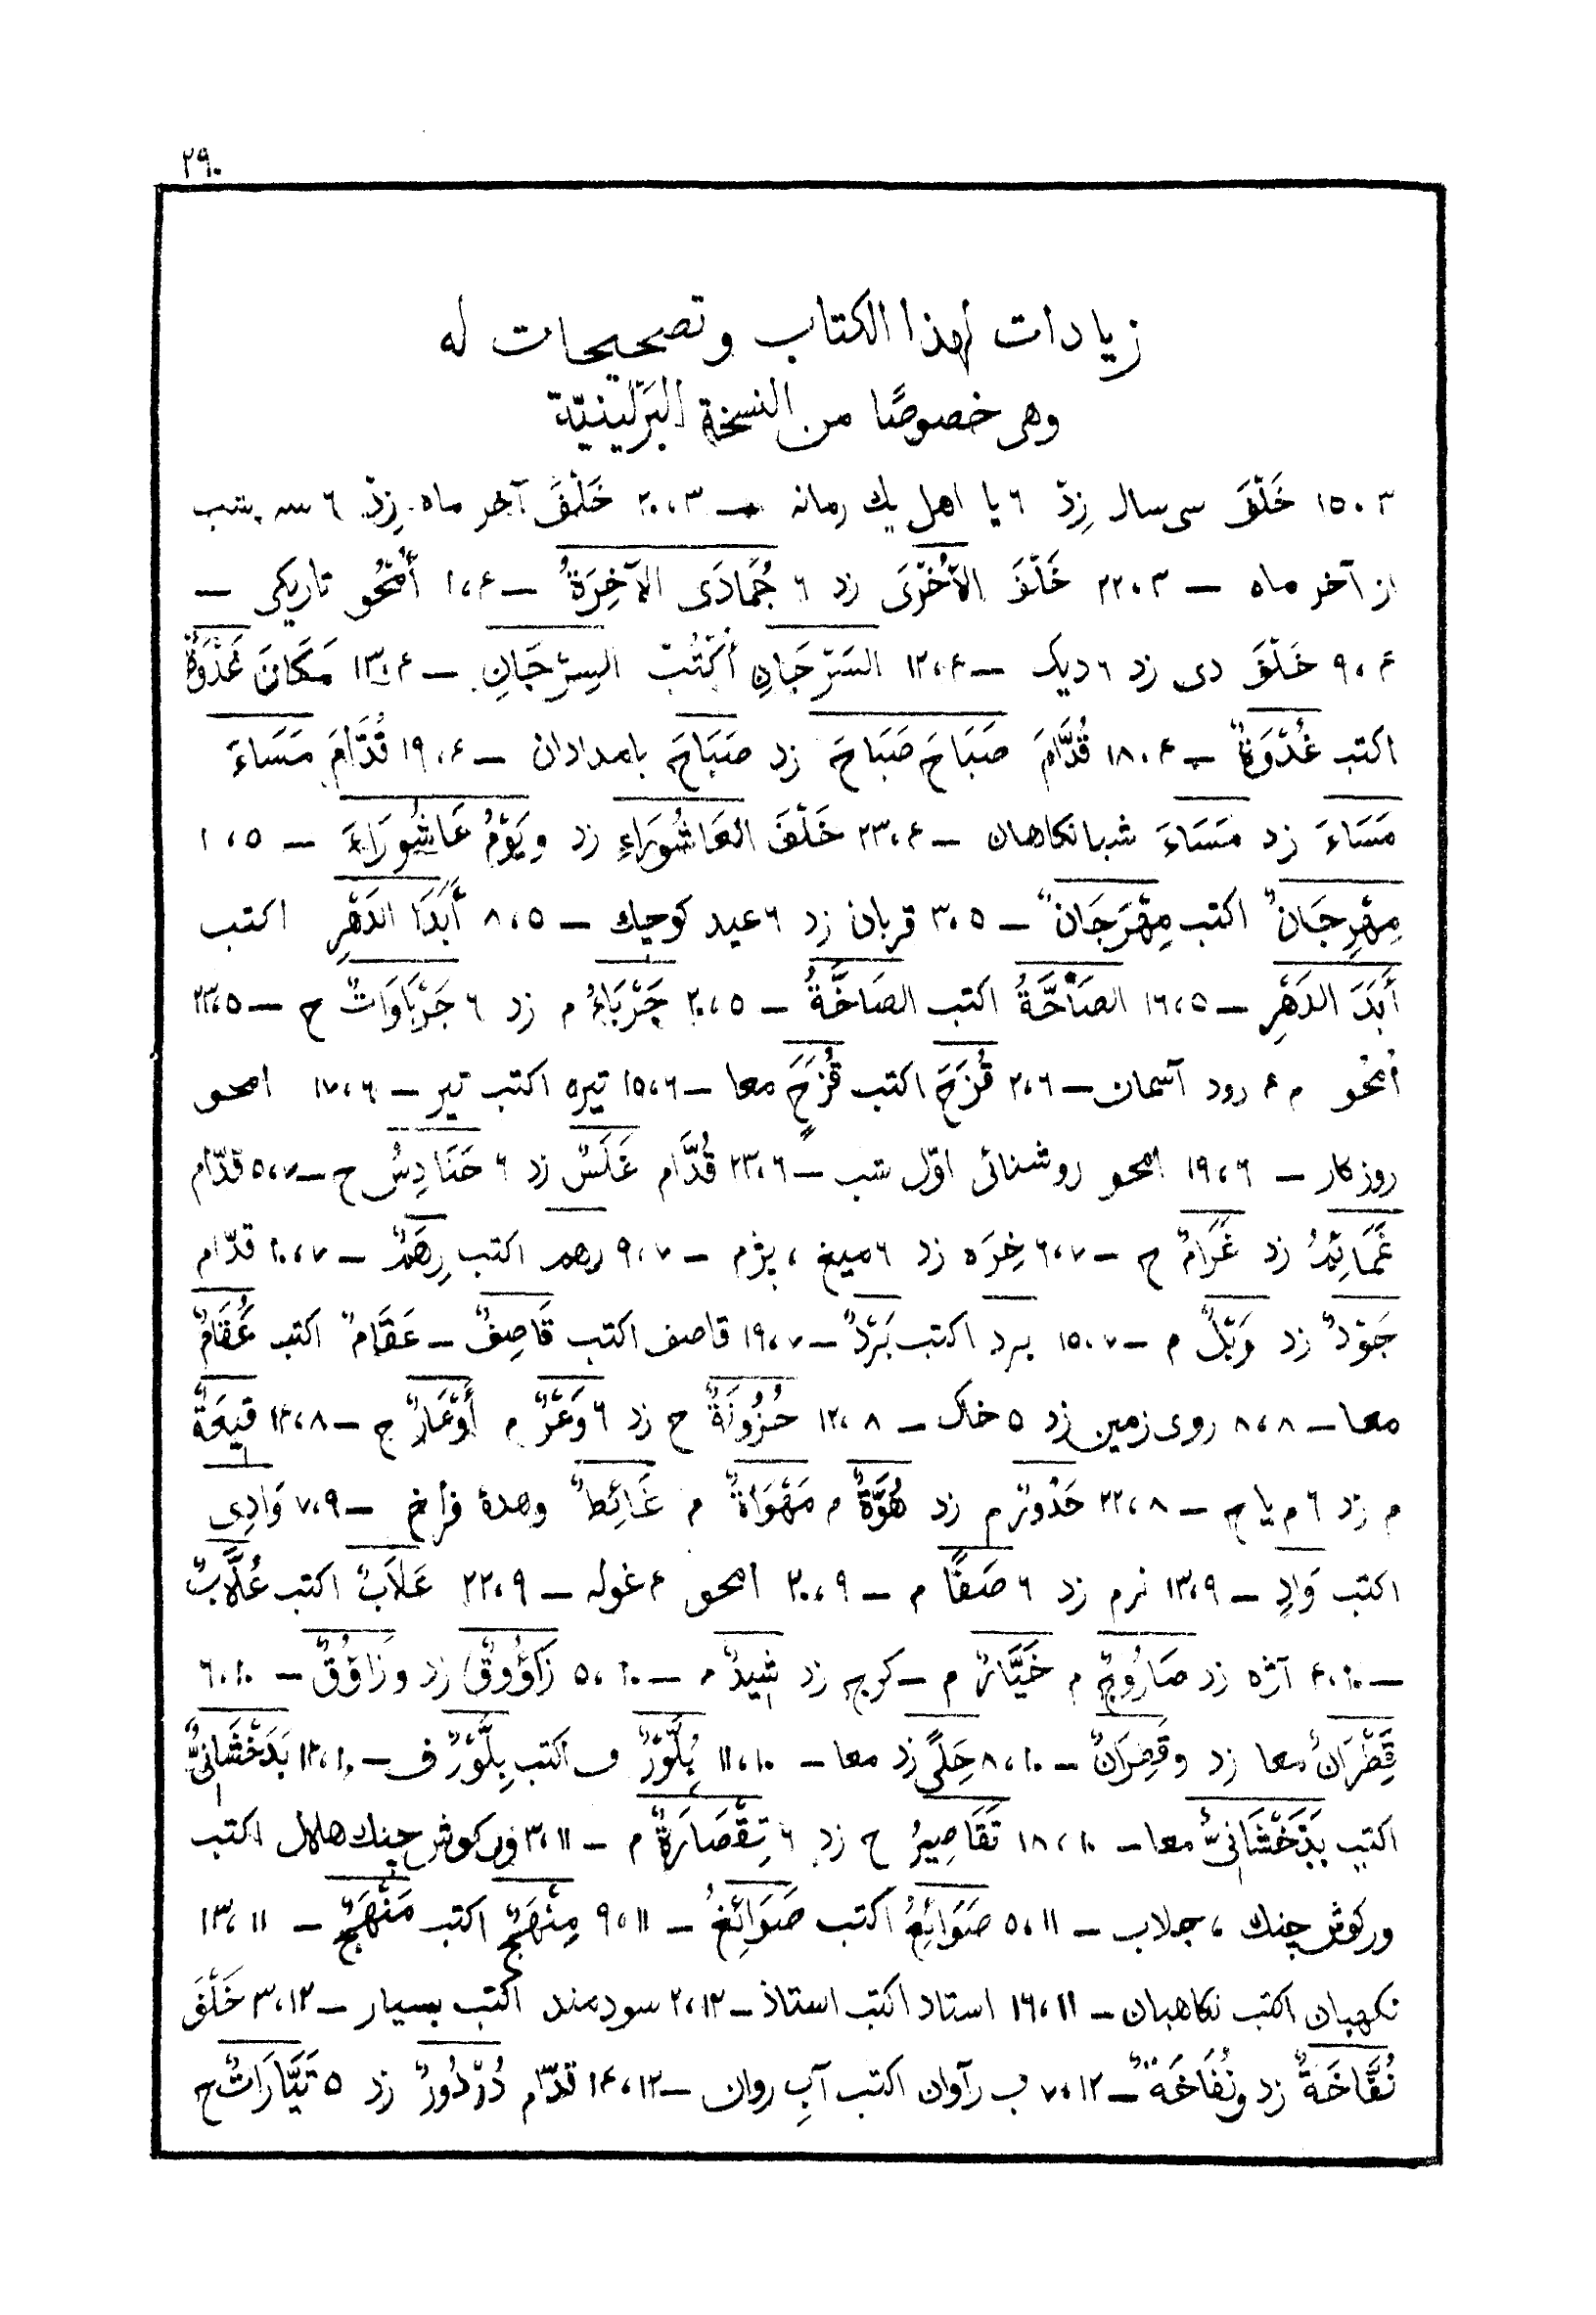 ٢٩٠
زيادات لهذا الكتاب وتصحيحات له
وهى خصوصًا من النسخة البَرْلينيّة
١٥٠٣ خَلْفَ سى سال زِدْ ٦ يا اهل يك زمانه — ٢٠،٣ خَلْفَ آخر ماه زِدْ ٦ سه شب
از آخر ماه — ٢٢،٣ خَلْفَ الأُخْرَى زد ٦ جُمَادَى الآخِرَةُ — ١،۴ أُمْحُو تاريكى —
٩،۴ خَلْفَ دى زد ٦ ديك — ١٢،۴ السَرْجَانِ أُكْتُبْ السِرْجَانِ — ١٣،۴ مَكَانَ غَدْوَةٌ
اكتب غُدْوَةٌ — ١٨،۴ قُدَّامَ صَبَاحَ صَبَاحَ زد صَبَاحَ بامدادان — ١٩،۴ قُدَّامَ مَسَاءَ
مَسَاءَ زد مَسَاءَ شبانكاهان — ٢٣،۴ خَلْفَ العَاشُورَاءِ زد ويَوْمُ عَاشُورَاءَ — ١،٥
مِهْرِجَانٌ اكتب مِهْرَجَانٌ — ٣،٥ قربان زد ٦ عيد كوچك — ٨،٥ أَبَدَا الدَهْرِ اكتب
أَبَدَ الدَهْرِ — ١٦،٥ الصَاحَّةُ اكتب الصَاخَّةُ — ٢٠،٥ جَرْبَاءُ م زد ٦ جَرْبَاوَاتٌ ح — ٢٣،٥
أمحو م ۴ رود آسمان — ٢،٦ قُزَحَ اكتب قُزَحٍ معا — ١٥،٦ تيره اكتب تير — ١٧،٦ امحو
روزكار — ١٩،٦ امحو روشنائى اوّل شب — ٢٣،٦ قُدَّام غَلَسٌ زد ٦ حَنَادِسُ ح — ٥،٧ قدّام
غَمَائِمُ زد غَرَامٌ ح — ٦،٧ خِرَه زد ٦ ميغ ، بژم — ٩،٧ رهم اكتب رِهَمٌ — ١٠،٧ قدّام
جَوْدٌ زد وَبْلٌ م — ١٥،٧ برد اكتب بَرْدٌ — ١٩،٧ قاصف اكتب قَاصِفٌ — عَقَامٌ اكتب عُقَامٌ
معا — ٨،٨ روى زمين زد ٥ خاك — ١٢،٨ حُزُونَةٌ ح زد ٦ وَعْرٌ م أَوْعَارٌ ح — ١٤،٨ قِيعَةٌ
م زد ٦ م يا ح — ٢٢،٨ حَدُورٌ م زد هُوَّةٌ م مَهْوَاةٌ م غَائِطٌ وهدۀ فراخ — ٧،٩ وَادِى
اكتب وَادٍ — ١٣،٩ نرم زد ٦ صَفًا م — ٢٠،٩ امحو ۴ غوله — ٢٢،٩ عَلاَبٌ اكتب عُلَّابٌ
— ۴،١٠ آژه زد صَارُوجٌ م خَيَّارٌ م — كرج زد شِيدٌ م — ٥،١٠ زَاؤُوقٌ زد وزَاوُقٌ — ٦،١٠
قِطْرَانٌ معا زد وقَطِرَانٌ — ٨،١٠ حِلًى زد معا — ١١،١٠ بُلَّوْرٌ ف اكتب بِلَّوْرٌ ف — ١٤،١٠ بَدَخْشَانِىٌّ
اكتب بَدَخْشَانِىٌّ معا — ١٨،١٠ تَقَاصِيرُ ح زد ٦ تِقْصَارَةٌ م — ٣،١١ وركوش چنك هلال اكتب
وركوش چنك ، جلاب — ٥،١١ صَوَائِعُ اكتب صَوَائِغُ — ٩،١١ مِنْهَجٌ اكتب مَنْهَجٌ — ١٣،١١
نكهبان اكتب نكاهبان — ١٦،١١ استاد اكتب استاذ — ٢،١٢ سودمند اكتب بسيار — ٣،١٢ خَلْفَ
نُفَّاخَةٌ زد ونُفَاخَةٌ — ٧،١٢ ب رآوان اكتب آبِ روان — ١۴،١٢ قدّام دُرْدُورٌ زد ٥ تَيَّارَاتٌ ح